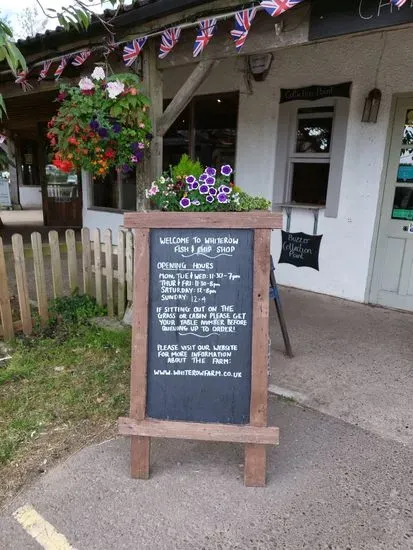 Collection Point
WELCOME TO WHITEROW
FISH & CHIP SHOP
OPENING HOURS
MON, TUE & WED: 11:30 - 7pm
THUR & FRI: 11:30-8pm
SATURDAY: 12-8pm
SUNDAY: 12-4
IF SITTING OUT ON THE
GRASS OR CABIN PLEASE GET
YOUR TABLE NUMBER BEFORE
QUEUING UP TO ORDER!
PLEASE VISIT OUR WEBSITE
FOR MORE INFORMATION
ABOUT THE FARM:
WWW.WHITEROWFARM.CO.UK
Buzzer
Collection
Point